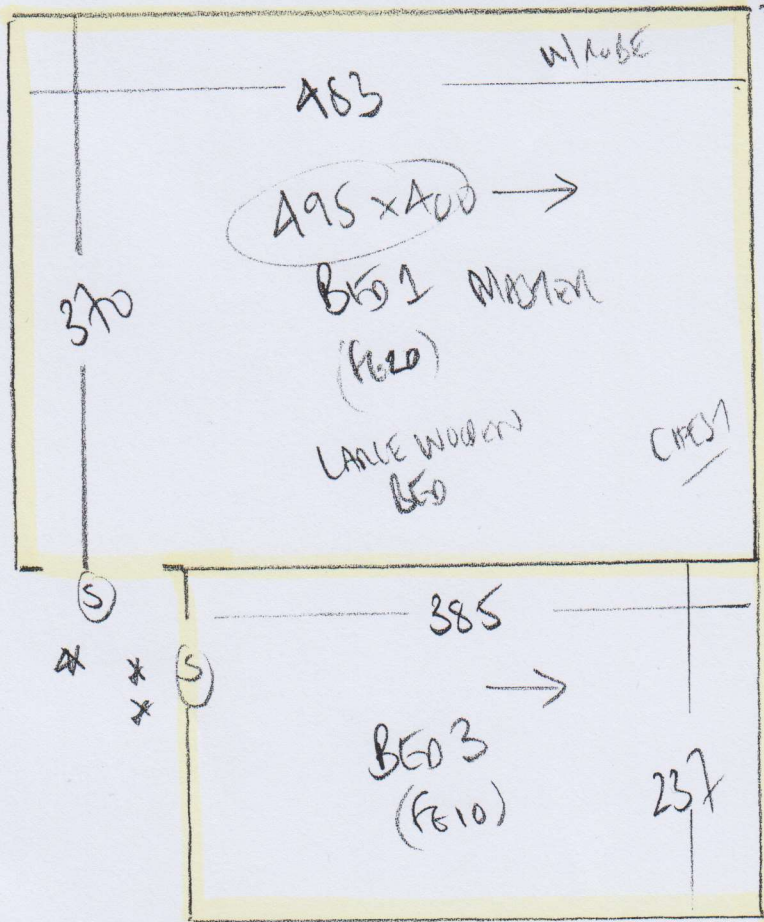 W/ROBE
483
495 x 400 →
370
BED 1 MASTER
(FE20)
LARGE WOODEN
BED
CHEST
S
385
* * S
*
→
BED 3
(FE10)
237